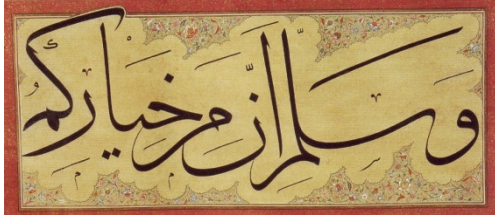 وسلم إنّ من خياركم